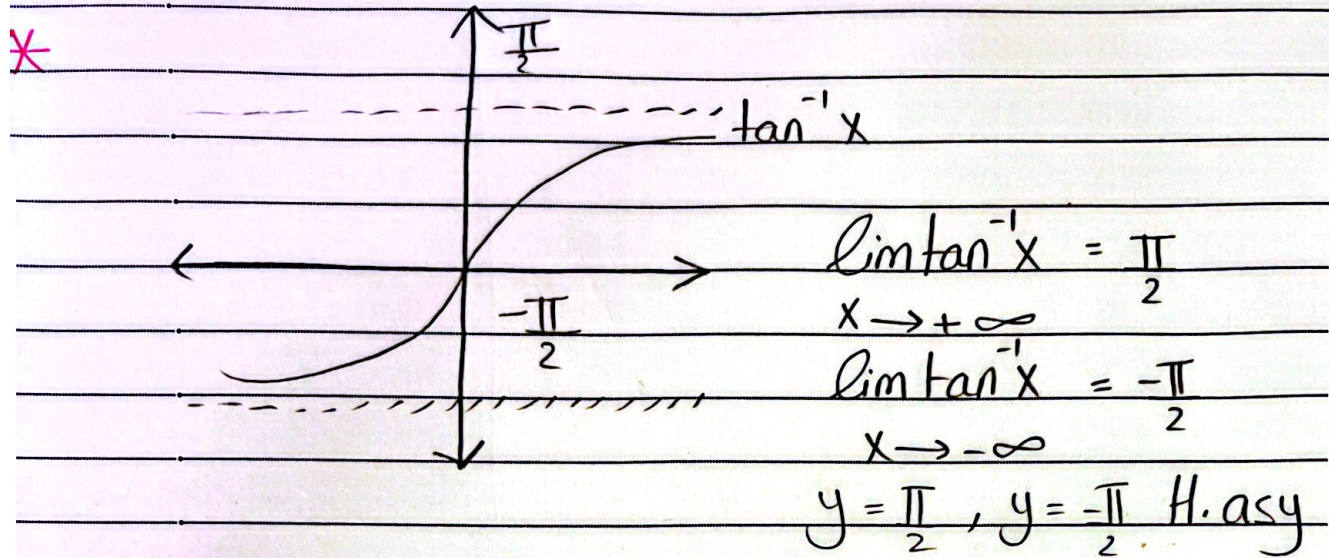 *
π/2
tan⁻¹ x
lim tan⁻¹ x = π/2
x → + ∞
-π/2
lim tan⁻¹ x = -π/2
x → - ∞
y = π/2 , y = -π/2 H. asy